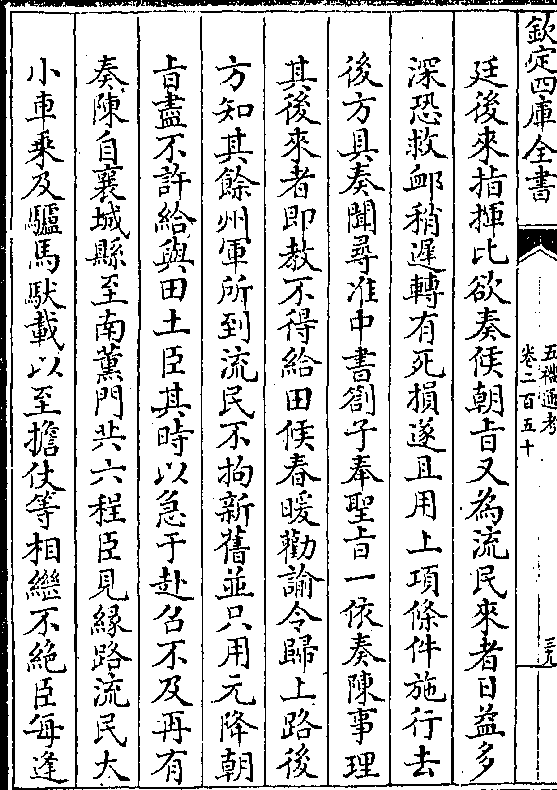 欽定四庫全書
五禮通考
卷二百五十
三九
廷後來指揮比欲奏候朝㫖又為流民來者日益多
深恐救䘏稍遲轉有死損遂且用上項條件施行去
後方具奏聞尋准中書劄子奉聖㫖一依奏陳事理
其後來者即教不得給田候春暖勸諭令歸上路後
方知其餘州軍所到流民不拘新舊並只用元降朝
㫖盡不許給與田土臣其時以急于赴召不及再有
奏陳自襄城縣至南薫門共六程臣見緣路流民大
小車乗及驢馬馱載以至擔仗等相繼不絶臣每逢